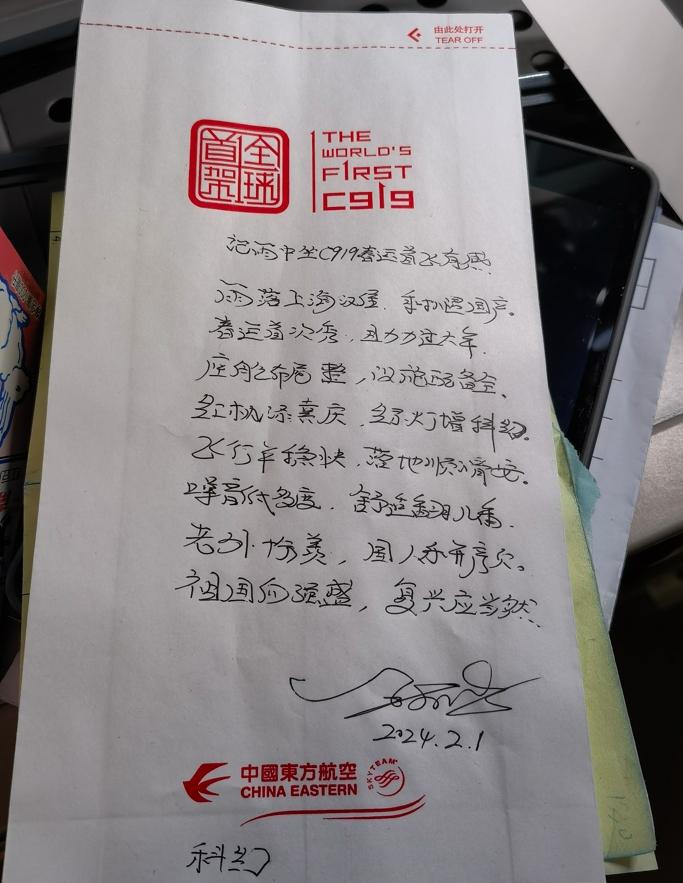 由此处打开
TEAR OFF
全球首架
THE
WORLD'S
FIRST
C919
记雨中坐C919春运首飞有感
雨落上海汉堡，乘机遇国产。
春运首次秀，助力过大年。
座舱布局整，设施配备全。
红机添喜庆，绿灯增科幻。
飞行平稳快，落地顺滑安。
噪音低多度，舒适翻几番。
老外惊羡，国人亦开颜。
祖国向强盛，复兴应当然。
2024.2.1
中國東方航空
CHINA EASTERN
SKYTEAM
科幻